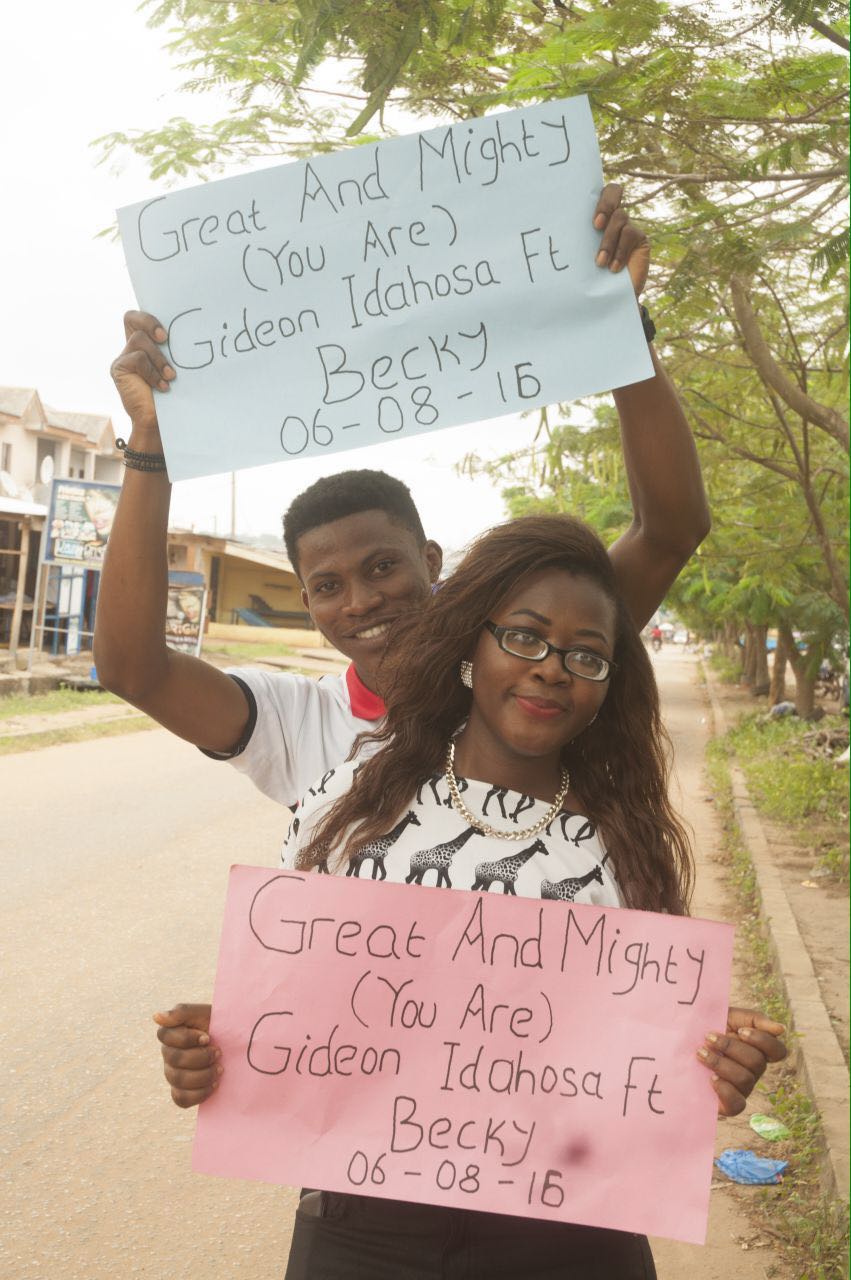 Great And Mighty
(You Are)
Gideon Idahosa Ft
Becky
06-08-16
Great And Mighty
(You Are)
Gideon Idahosa Ft
Becky
06-08-16